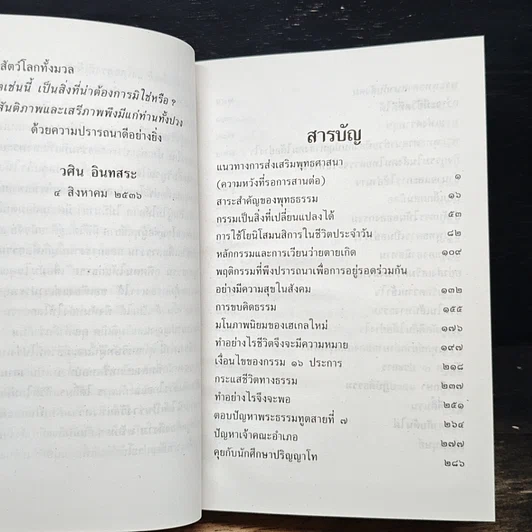 สัตว์โลกทั้งมวล
เช่นนี้ เป็นสิ่งที่น่าต้องการมิใช่หรือ ?
สันติภาพและเสรีภาพพึงมีแก่ท่านทั้งปวง
ด้วยความปรารถนาดีอย่างยิ่ง
วศิน อินทสระ
๔ สิงหาคม ๒๕๓๖
สารบัญ
แนวทางการส่งเสริมพุทธศาสนา
(ความหวังที่รอการสานต่อ) ๑
สาระสำคัญของพุทธธรรม ๑๖
กรรมเป็นสิ่งที่เปลี่ยนแปลงได้ ๕๓
การใช้โยนิโสมนสิการในชีวิตประจำวัน ๘๒
หลักกรรมและการเวียนว่ายตายเกิด ๑๐๙
พฤติกรรมที่พึงปรารถนาเพื่อการอยู่รอดร่วมกัน
อย่างมีความสุขในสังคม ๑๓๒
การขบคิดธรรม ๑๕๕
มโนภาพนิยมของเฮเกลใหม่ ๑๗๖
ทำอย่างไรชีวิตจึงจะมีความหมาย ๑๙๗
เงื่อนไขของกรรม ๑๖ ประการ ๒๑๘
กระแสชีวิตทางธรรม ๒๓๗
ทำอย่างไรจึงจะพอ ๒๕๑
ตอบปัญหาพระธรรมทูตสายที่ ๗ ๒๖๔
ปัญหาเจ้าคณะอำเภอ ๒๗๗
คุยกับนักศึกษาปริญญาโท ๒๘๖